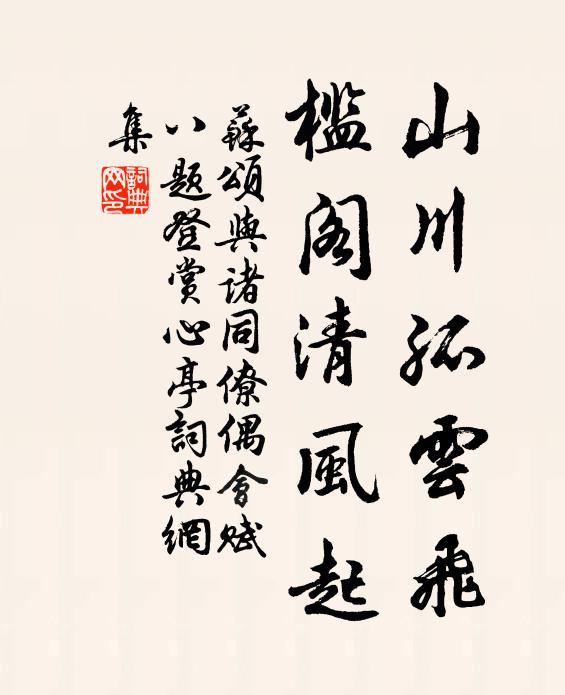 山川孤雲飛
檻閣清風起
蘇頌與諸同僚偶會賦
八題登賞心亭詞典網
集
詞典
网印